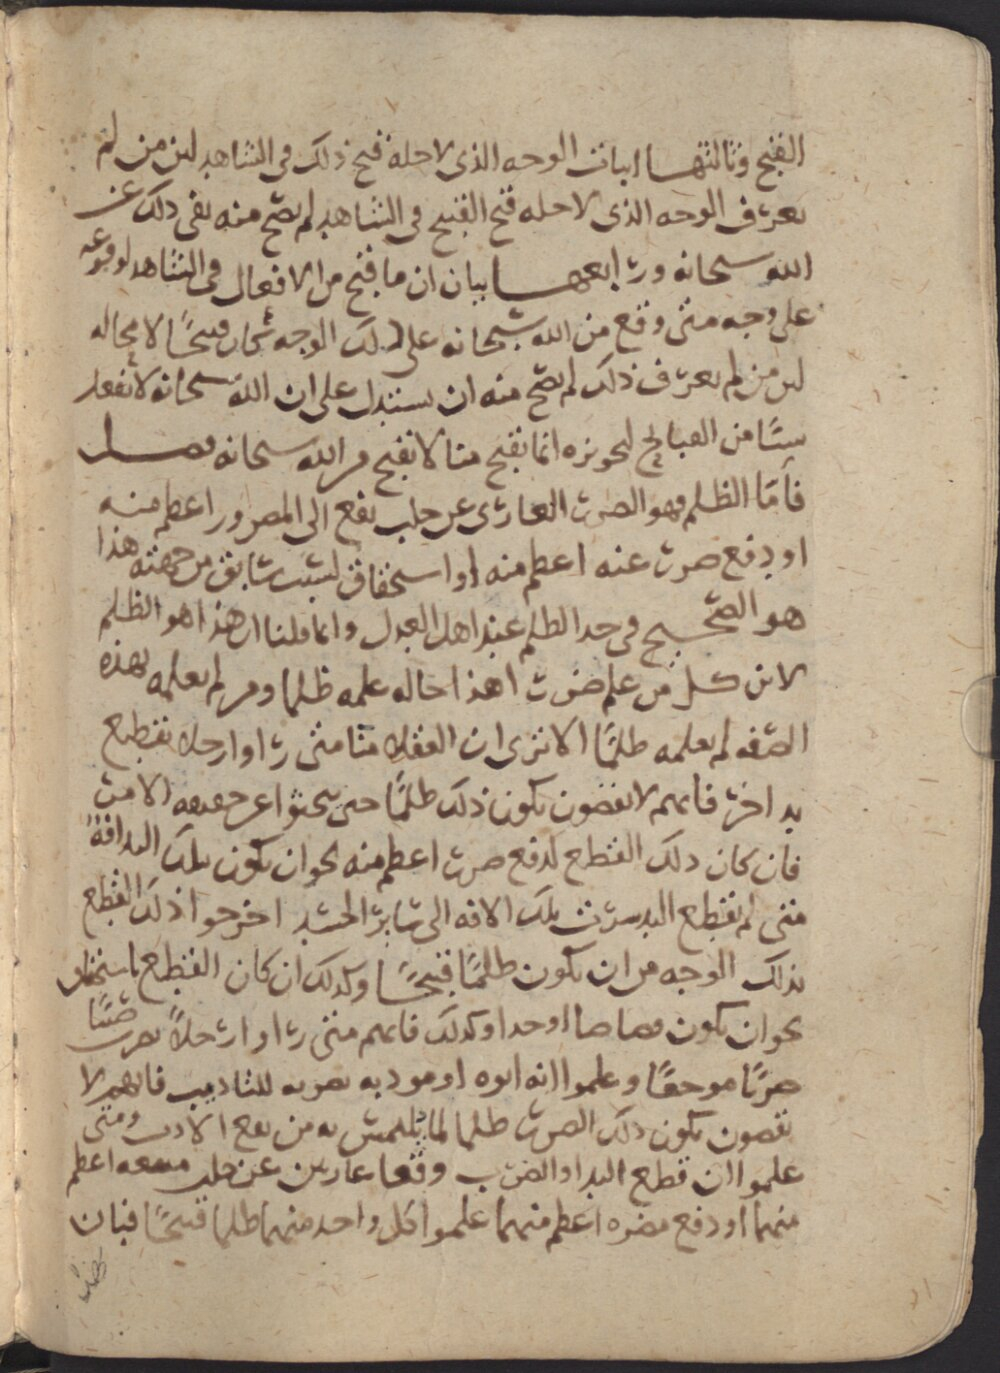 القبح وثالثها اثبات الوجه الذي لاجله قبح ذلك في الشاهد لان من لم
يعرف الوجه الذي لاجله قبح القبيح في الشاهد لم يصح منه نفي ذلك عن
الله سبحانه ورابعها بيان ان ما قبح من الافعال في الشاهد لوقوعه
على وجه متى وقع من الله سبحانه على ذلك الوجه كان قبيحًا لا محاله
لان من لم يعرف ذلك لم يصح منه ان يستدل على ان الله سبحانه لا يفعل
شيئًا من القبايح لتجويزه انما يقبح منا لا يقبح من الله سبحانه فصل
فأمّا الظلم فهو الضرر العاري عن جلب نفع الى المضرور اعظم منه
او دفع ضرر عنه اعظم منه او استحقاق لسبب سابق من جهته هذا
هو الصحيح في حد الظلم عند اهل العدل وانما قلنا ان هذا هو الظلم
لان كل من علم ضررا هذا حاله علمه ظلما ومن لم يعلمه بهذه
الصفه لم يعلمه ظلمًا الا ترى ان العقلا منا متى راوا رجلا يقطع
يد اخر فانهم لا يقضون بكون ذلك ظلمًا حتى يبحثوا عن حقيقه الامر
فان كان ذلك القطع لدفع ضرر اعظم منه نحو ان يكون بتلك اليد افة
متى لم تقطع اليد سرت تلك الافه الى سائر الجسد اخرجوا ذلك القطع
بذلك الوجه من ان يكون ظلمًا قبيحًا وكذلك ان كان القطع باستحقاق
نحو ان يكون قصاصا او حدا وكذلك فانهم متى راوا رجلاً يضرب صبيًا
ضربًا موجعًا وعلموا انه ابوه او مودبه يضربه للتاديب فانهم لا
يقضون بكون ذلك الضرب ظلما لما يلتمس به من نفع الادب ومتى
علموا ان قطع اليد او الضرب وقعا عاريين عن جلب منفعه اعظم
منهما او دفع مضره اعظم منهما علموا كل واحد منهما ظلما قبيحًا فبان